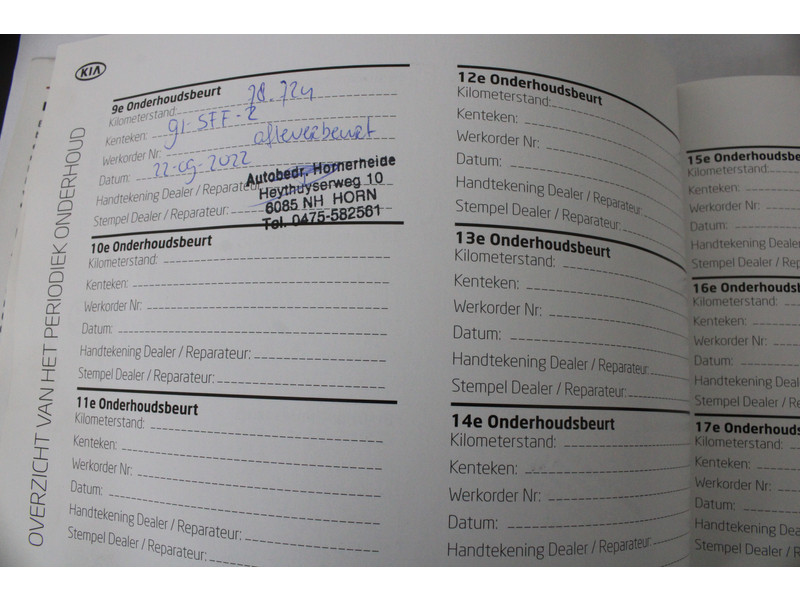 KIA
OVERZICHT VAN HET PERIODIEK ONDERHOUD
9e Onderhoudsbeurt
Kilometerstand: 78.724
Kenteken: 91-SFF-2
Werkorder Nr: afleverbeurt
Datum: 22-09-2022
Handtekening Dealer / Reparateur:
Stempel Dealer / Reparateur:
Autobedr. Hornerheide
Heythuyserweg 10
6085 NH HORN
Tel. 0475-582561
10e Onderhoudsbeurt
Kilometerstand:
Kenteken:
Werkorder Nr:
Datum:
Handtekening Dealer / Reparateur:
Stempel Dealer / Reparateur:
11e Onderhoudsbeurt
Kilometerstand:
Kenteken:
Werkorder Nr:
Datum:
Handtekening Dealer / Reparateur:
Stempel Dealer / Reparateur:
12e Onderhoudsbeurt
Kilometerstand:
Kenteken:
Werkorder Nr:
Datum:
Handtekening Dealer / Reparateur:
Stempel Dealer / Reparateur:
13e Onderhoudsbeurt
Kilometerstand:
Kenteken:
Werkorder Nr:
Datum:
Handtekening Dealer / Reparateur:
Stempel Dealer / Reparateur:
14e Onderhoudsbeurt
Kilometerstand:
Kenteken:
Werkorder Nr:
Datum:
Handtekening Dealer / Reparateur:
15e Onderhoudsb
Kilometerstand:
Kenteken:
Werkorder Nr:
Datum:
Handtekening Dealer
Stempel Dealer / Re
16e Onderhouds
Kilometerstand:
Kenteken:
Werkorder Nr:
Datum:
Handtekening Deale
Stempel Dealer / Re
17e Onderhouds
Kilometerstand:
Kenteken:
Werkorder Nr:
Datum:
Handtekening Dea
Stempel Dealer / R